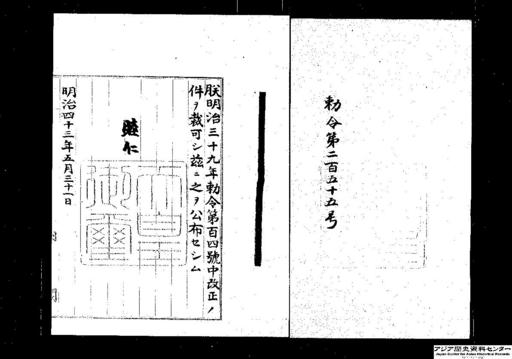 勅令第二百五十五号
朕明治三十九年勅令第百四號中改正ノ
件ヲ裁可シ茲ニ之ヲ公布セシム
睦仁
天皇御璽
明治四十三年五月三十一日
アジア歴史資料センター
Japan Center for Asian Historical Records